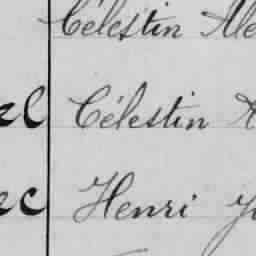 Célestin Ale
el Célestin A
ec Henri